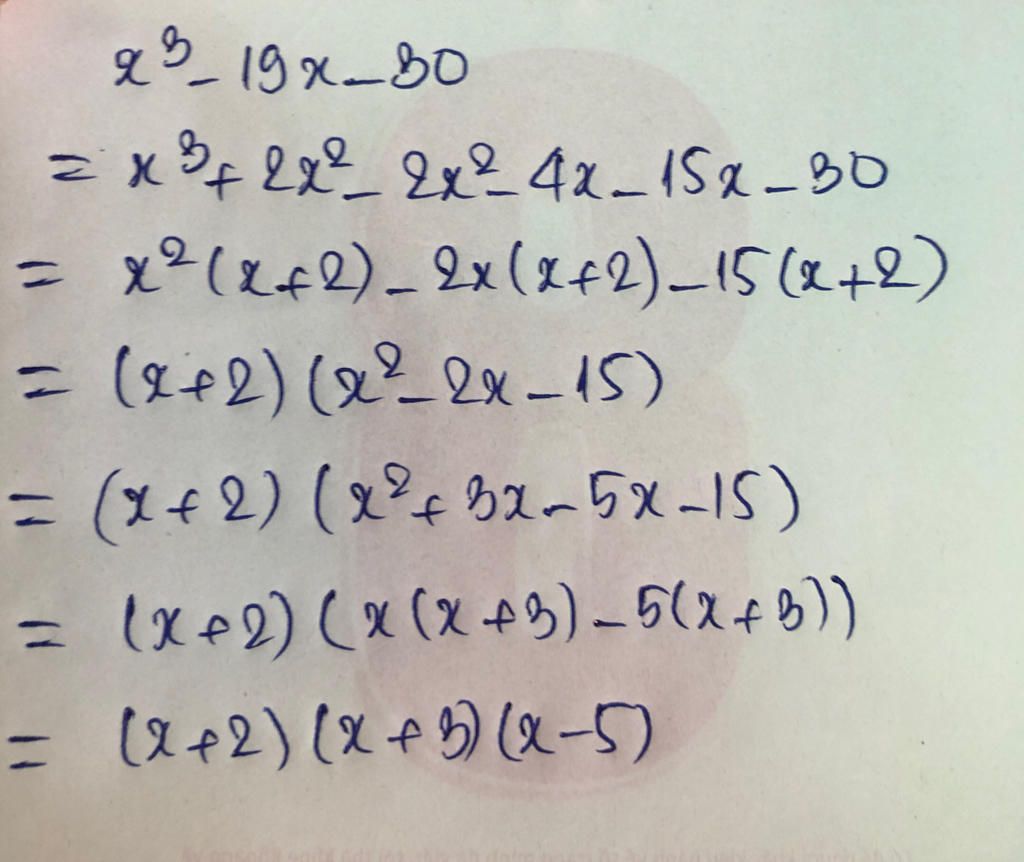 x³ - 19x - 30
= x³ + 2x² - 2x² - 4x - 15x - 30
= x²(x+2) - 2x(x+2) - 15(x+2)
= (x+2)(x² - 2x - 15)
= (x+2)(x² + 3x - 5x - 15)
= (x+2)(x(x+3) - 5(x+3))
= (x+2)(x+3)(x-5)